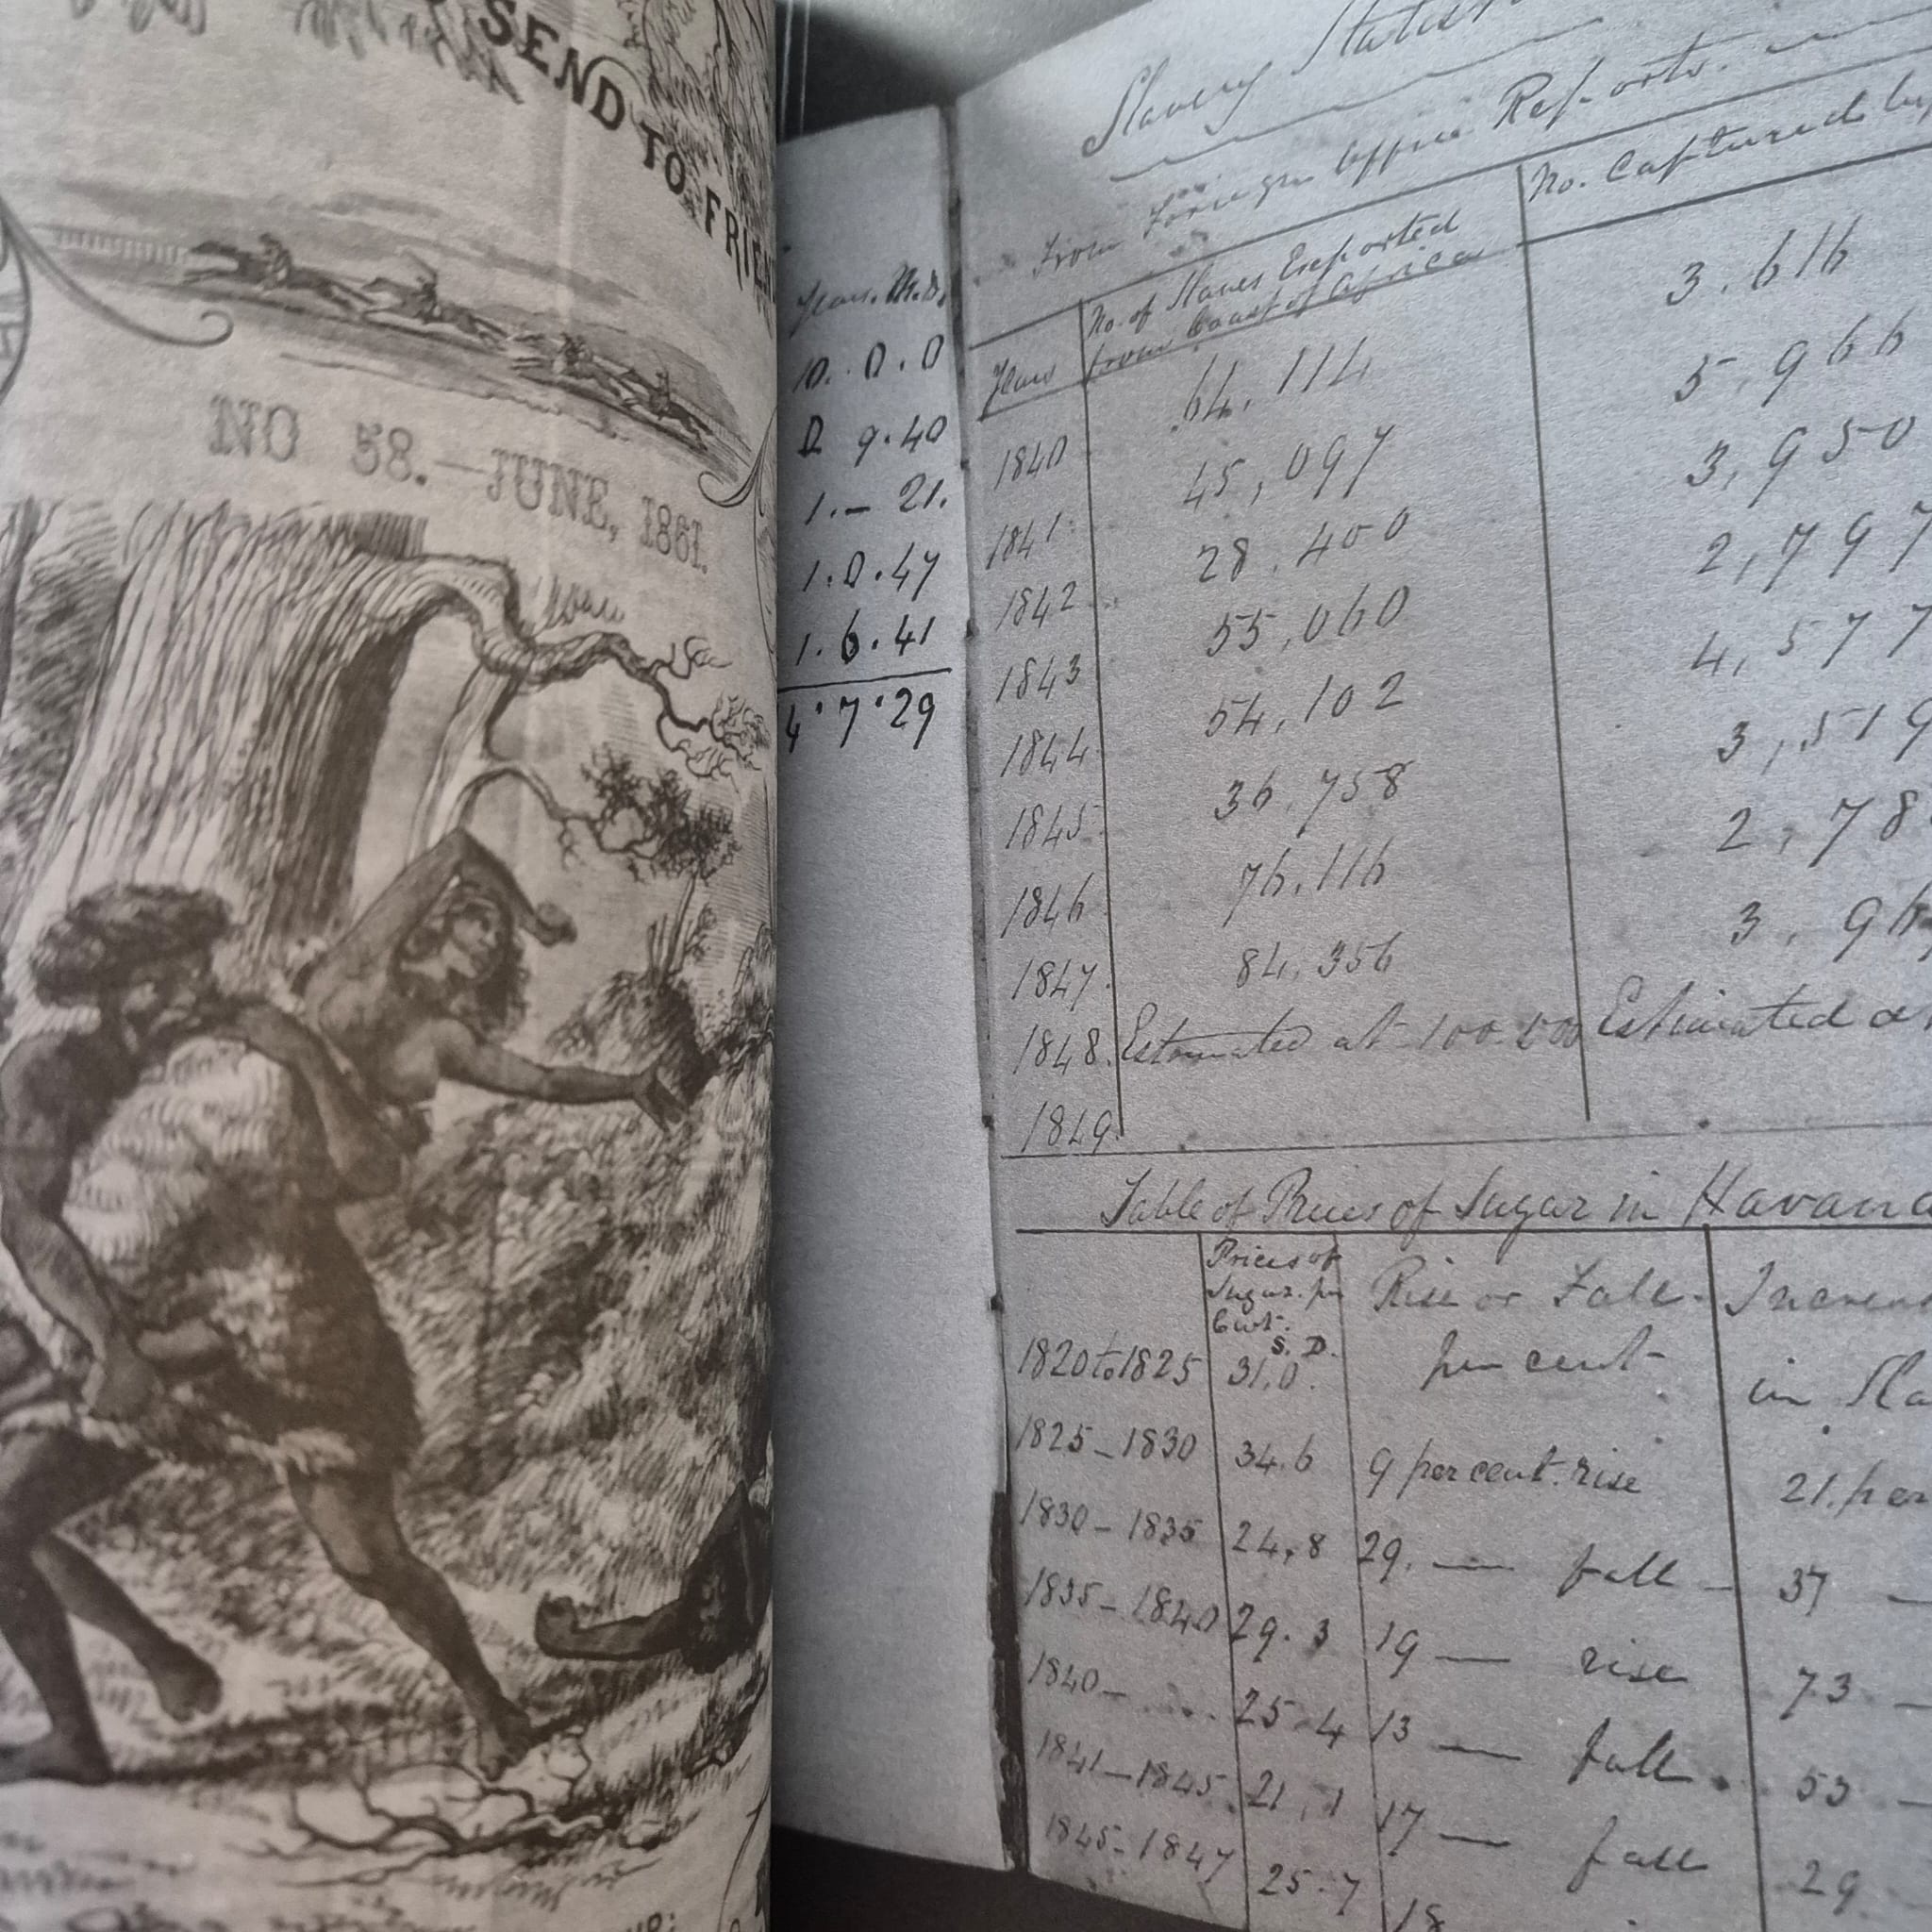 SEND TO FRIE
NO 58.—JUNE, 1861.
Years. M. D.
0. 0. 0
0 9. 40
1. — 21.
1. 0. 47
1. 6. 41
4. 7. 29
Slavery
From Foreign Office Reports.
Years No. of Slaves Exported from Coast of Africa No. Captured by
1840 64,114 3.616
1841 45,097 5,966
1842 28.400 3,950
1843 55,060 2,797
1844 54,102 4,577
1845 36.758 3,519
1846 76,116 2,78
1847. 84,356 3,96
1848. Estimated at 100.000 Estimated a
1849
Table of Prices of Sugar in Havana
Prices of Sugar. per Cwt. S. D. Rise or Fall per cent Increa in Sla
1820 to 1825 31.0.
1825 – 1830 34.6 9 per cent. rise 21. per
1830 – 1835 24,8 29. — fall — 37 —
1835 – 1840 29. 3 19 — rise 73 —
1840 – .... 25.4 13 — fall. 53 —
1841 – 1845. 21,1 17 — fall 29
1845 – 1847 25.7 18